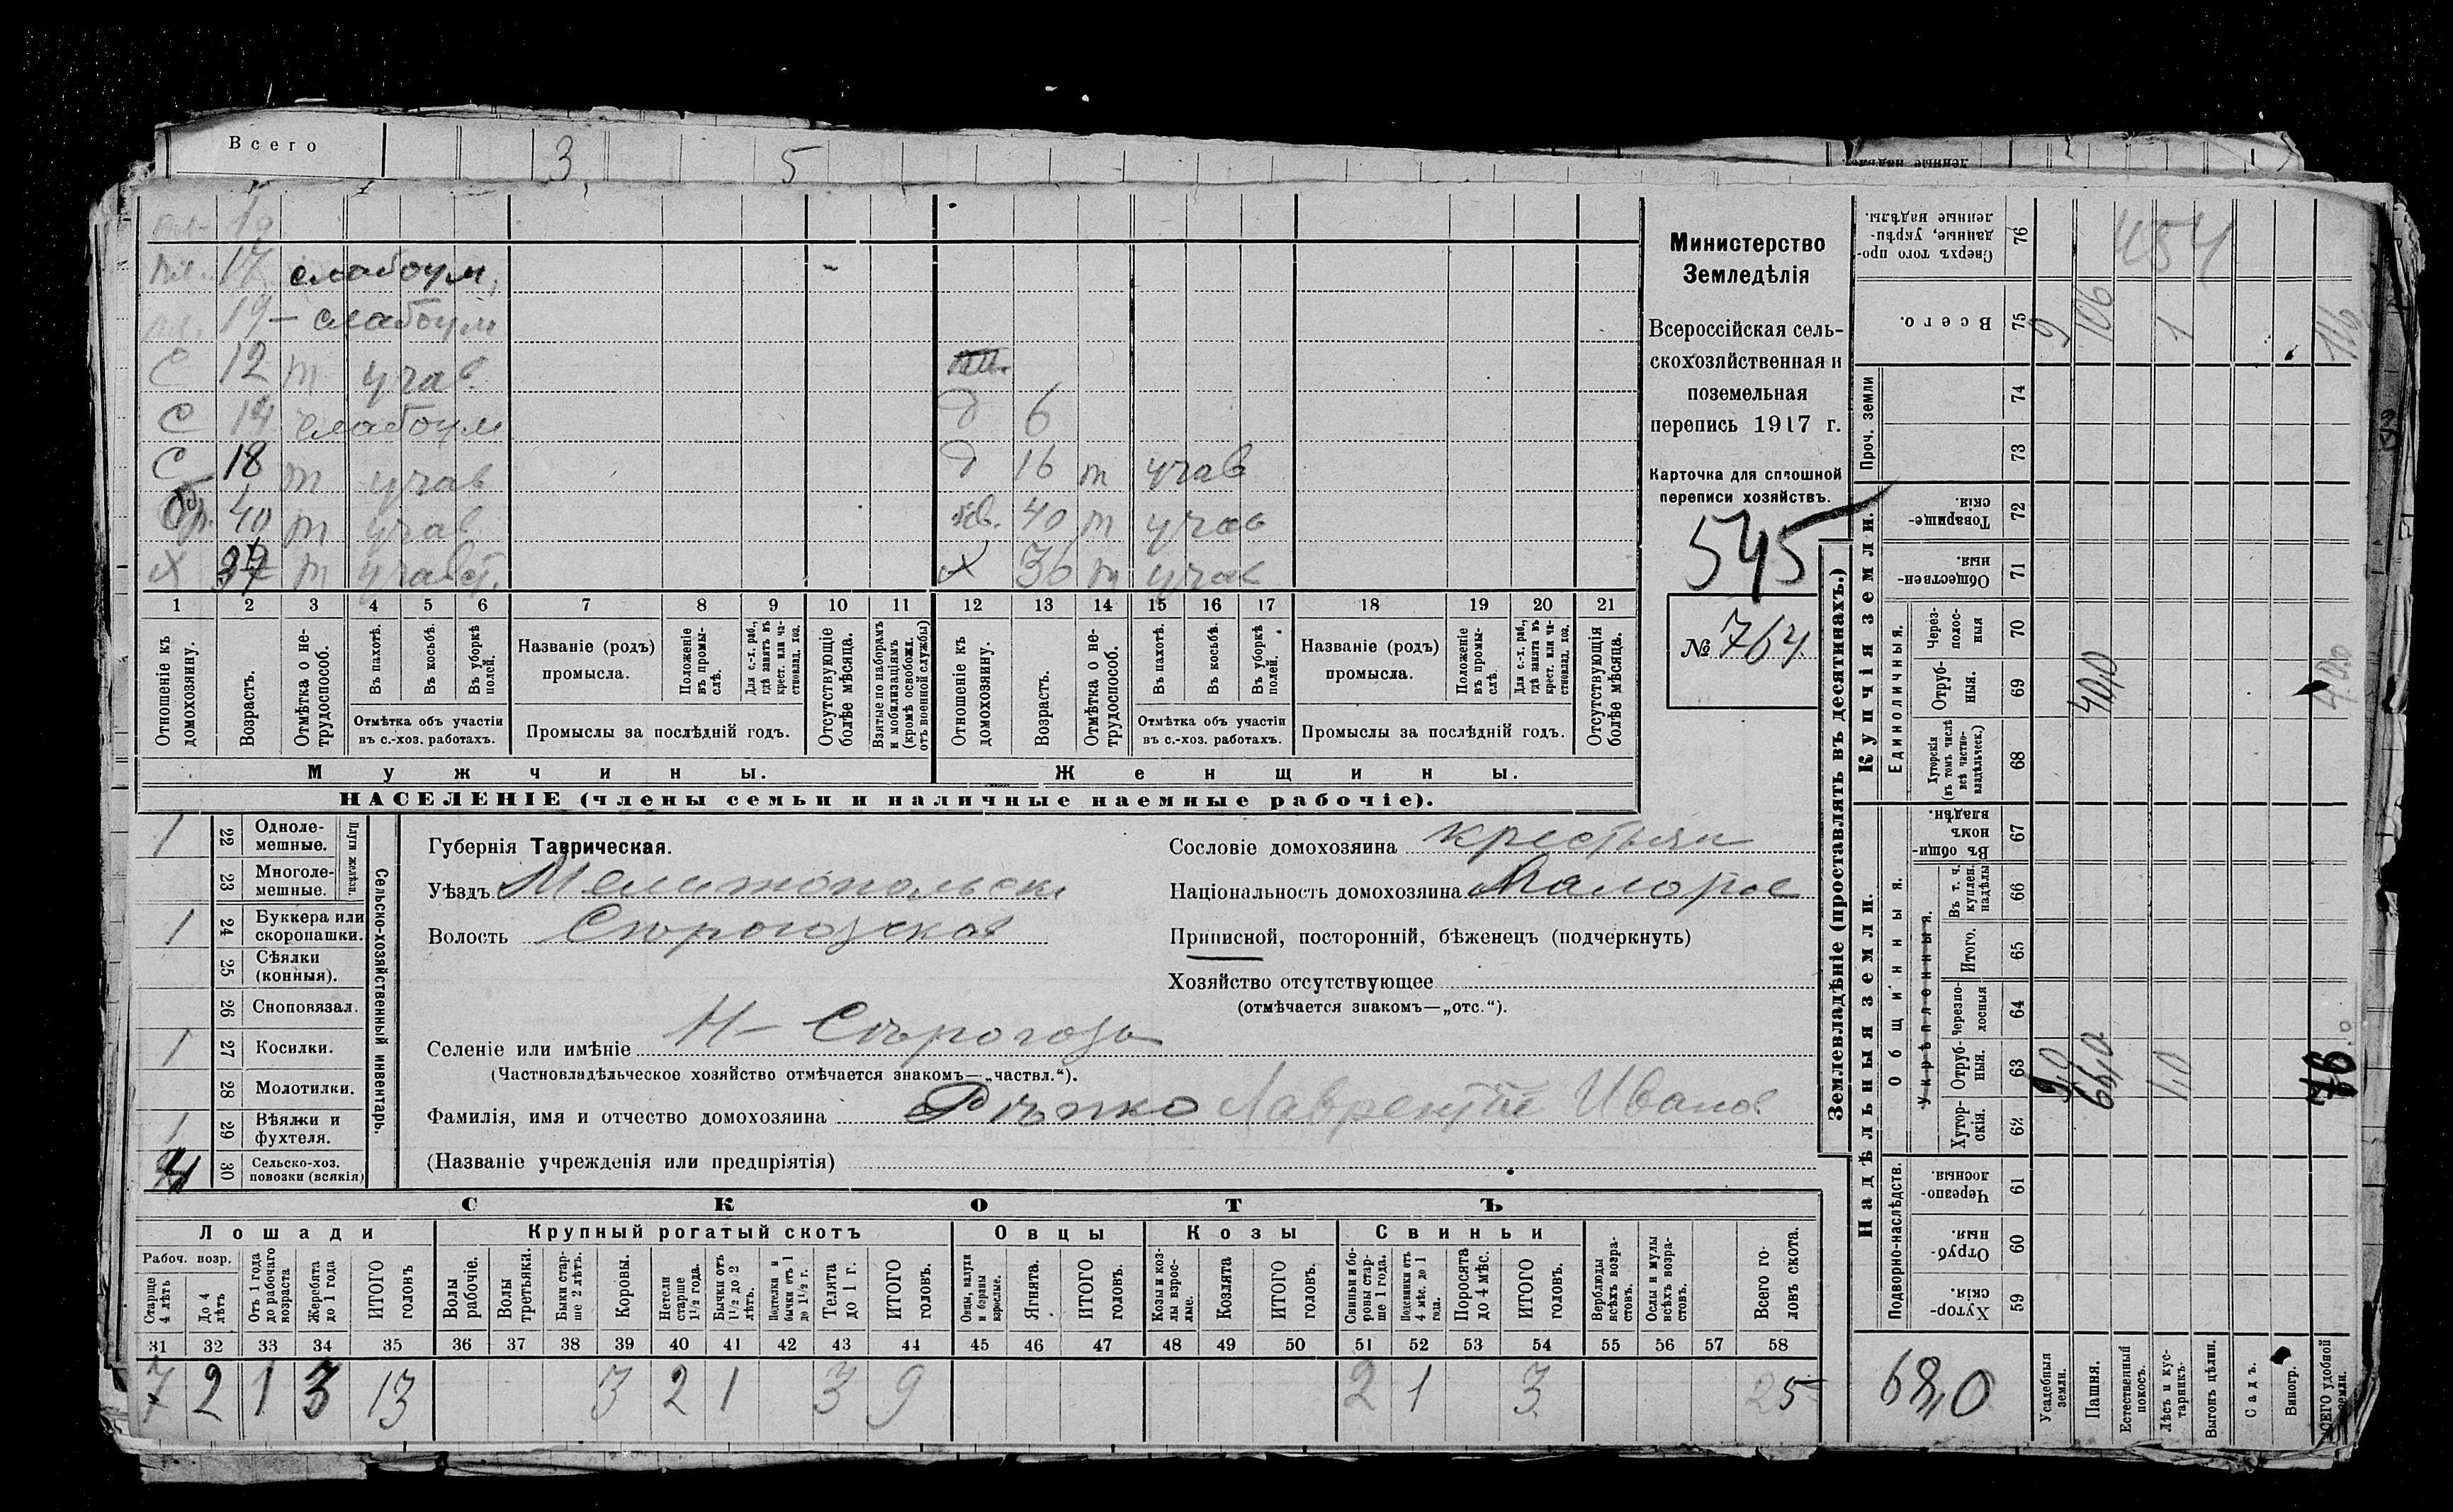 Всего 3 5
пл. 17 слабоум.
19 — слабоум
С 12 т учав
С 14 слабоум
д 6
С 18 т учав
д 16 т учав
бр. 40 т учав
40 т учав
Х т участ.
Х 36 т учав
1 2 3 4 5 6 7 8 9 10 11 12 13 14 15 16 17 18 19 20 21
Отношеніе къ домохозяину.
Возрастъ.
Отмѣтка о не-трудоспособ.
Въ пахотѣ.
Въ косьбѣ.
Въ уборкѣ полей.
Отмѣтка объ участіи въ с.-хоз. работахъ.
Названіе (родъ) промысла.
Положеніе въ промы-слѣ.
Для с.-х. раб., гдѣ занятъ въ крест. или ча-стновлад. хоз.
Промыслы за послѣдній годъ.
Отсутствующіе болѣе мѣсяца.
Взятые по наборамъ и мобилизаціямъ (кромѣ освобожд. отъ военной службы)
Отношеніе къ домохозяину.
Возрастъ.
Отмѣтка о не-трудоспособ.
Въ пахотѣ.
Въ косьбѣ.
Въ уборкѣ полей.
Отмѣтка объ участіи въ с.-хоз. работахъ.
Названіе (родъ) промысла.
Положеніе въ промы-слѣ.
Для с.-х. раб., гдѣ занята въ крест. или ча-стновлад. хоз.
Промыслы за послѣдній годъ.
Отсутствующія болѣе мѣсяца.
Мужчины.
Женщины.
НАСЕЛЕНІЕ (члены семьи и наличные наемные рабочіе).
Министерство
Земледѣлія
Всероссійская сель-
скохозяйственная и
поземельная
перепись 1917 г.
Карточка для сплошной
переписи хозяйствъ.
545
№ 764
Сельско-хозяйственный инвентарь.
Плуги желѣзн.
1 22 Одноле-мешные.
23 Многоле-мешные.
1 24 Буккера или скоропашки.
25 Сѣялки (конныя).
26 Сноповязал.
1 27 Косилки.
28 Молотилки.
1 29 Вѣялки и фухтеля.
30 Сельско-хоз. повозки (всякія)
Губернія Таврическая.
Уѣздъ Мелитопольск.
Волость Сѣрогозская
Селеніе или имѣніе Н-Сѣрогозы
(Частновладѣльческое хозяйство отмѣчается знакомъ—„частвл.“).
Фамилія, имя и отчество домохозяина Рѣпко Лаврентій Иванов
(Названіе учрежденія или предпріятія)
Сословіе домохозяина крестьян
Національность домохозяина Малорос
Приписной, посторонній, бѣженецъ (подчеркнуть)
Хозяйство отсутствующее
(отмѣчается знакомъ—„отс.“).
СКОТЪ
Лошади
Крупный рогатый скотъ
Овцы
Козы
Свиньи
Рабоч. возр.
Старше 4 лѣтъ
До 4 лѣтъ
Отъ 1 года до рабочаго возраста
Жеребята до 1 года
ИТОГО головъ
Волы рабочіе.
Волы третьяки.
Быки стар-ше 2 лѣтъ.
Коровы.
Нетели старше 1½ года.
Бычки отъ 1½ до 2 лѣтъ.
Подтелки и бычки отъ 1 до 1½ г.
Телята до 1 г.
ИТОГО головъ.
Овцы, валухи и бараны взрослые.
Ягнята.
ИТОГО головъ.
Козы и коз-лы взрос-лые.
Козлята
ИТОГО головъ.
Свиньи и бо-ровы стар-ше 1 года.
Подсвинки отъ 4 мѣс. до 1 года.
Поросята до 4 мѣс.
ИТОГО головъ.
Верблюды всѣхъ возра-стовъ.
Ослы и мулы всѣхъ возра-стовъ.
Всего го-ловъ скота.
31 32 33 34 35 36 37 38 39 40 41 42 43 44 45 46 47 48 49 50 51 52 53 54 55 56 57 58
7 2 1 3 13 3 2 1 3 9 2 1 3 25
Землевладѣніе (проставлять въ десятинахъ.)
Купчія земли.
Надѣльныя земли.
Сверхъ того про-данные, укрѣп-ленные надѣлы. 76 454
Всего. 75 9 106 1 116
Проч. земли 74
73
Товарище-скія. 72
Обществен-ныя. 71
Единоличныя.
Через-полос-ныя 70
Отруб-ныя. 69 40,0 40,0
Хуторскія (въ томъ числѣ всѣ частно-владѣльческ.) 68
Общинныя.
Въ общин-номъ владѣн. 67
Въ т. ч. куплен. надѣлы 66
Укрѣпленныя.
Итого. 65
Черезпо-лосныя 64
Отруб-ныя. 63 66,0 1,0 76
Хутор-скія. 62
Подворно-наслѣдств.
Черезпо-лосныя 61
Отруб-ныя. 60
Хутор-скія. 59
68,0
Усадебныя земли.
Пашня.
Естественный покосъ.
Лѣсъ и кус-тарникъ.
Выгонъ цѣлин.
Садъ.
Виногр.
ВСЕГО удобной земли.